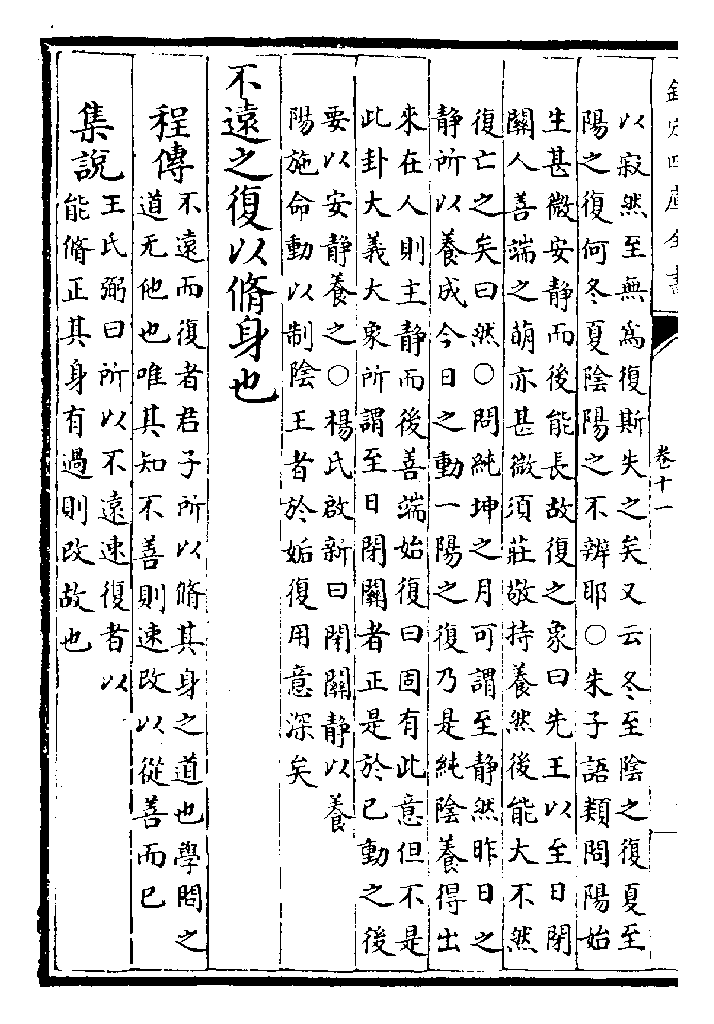 欽定四庫全書
卷十一
以寂然至無為復斯失之矣又云冬至陰之復夏至
陽之復何冬夏陰陽之不辨耶○朱子語類問陽始
生甚微安靜而後能長故復之象曰先王以至日閉
關人善端之萌亦甚微須莊敬持養然後能大不然
復亡之矣曰然○問純坤之月可謂至静然昨日之
静所以養成今日之動一陽之復乃是純陰養得出
來在人則主静而後善端始復曰固有此意但不是
此卦大義大象所謂至日閉關者正是於已動之後
要以安静養之○楊氏啟新曰閉關静以養
陽施命動以制陰王者於姤復用意深矣
不遠之復以脩身也
程傳
不遠而復者君子所以脩其身之道也學問之
道无他也唯其知不善則速改以從善而已
集說
王氏弼曰所以不遠速復者以
能脩正其身有過則改故也